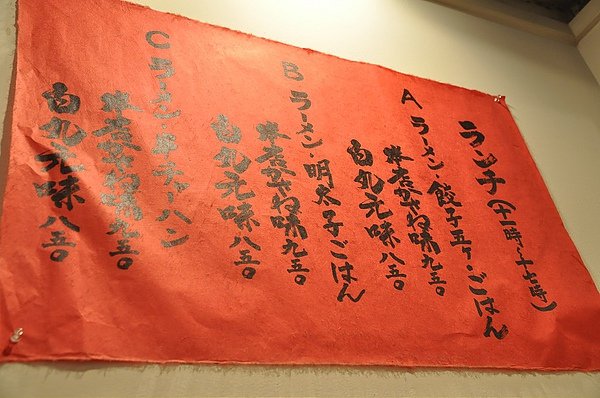 ランチ(十一時~十七時)
A ラーメン・餃子五ヶ・ごはん
赤丸かさね味九五〇
白丸元味八五〇
B ラーメン・明太子ごはん
赤丸かさね味九五〇
白丸元味八五〇
C ラーメン・半チャーハン
赤丸かさね味九五〇
白丸元味八五〇